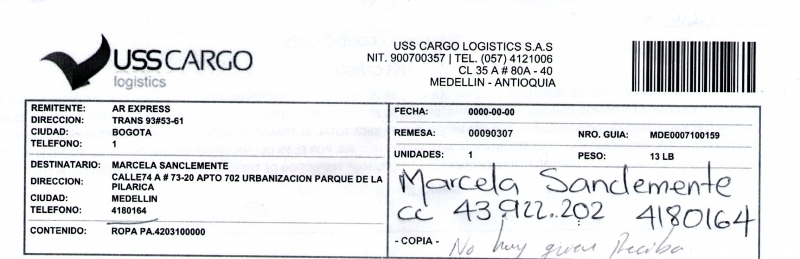 USS CARGO
logistics
USS CARGO LOGISTICS S.A.S
NIT. 900700357 | TEL. (057) 4121006
CL 35 A # 80A - 40
MEDELLIN - ANTIOQUIA
REMITENTE: AR EXPRESS
DIRECCION: TRANS 93#53-61
CIUDAD: BOGOTA
TELEFONO: 1
DESTINATARIO: MARCELA SANCLEMENTE
DIRECCION: CALLE74 A # 73-20 APTO 702 URBANIZACION PARQUE DE LA
PILARICA
CIUDAD: MEDELLIN
TELEFONO: 4180164
CONTENIDO: ROPA PA.4203100000
FECHA: 0000-00-00
REMESA: 00090307 NRO. GUIA: MDE0007100159
UNIDADES: 1 PESO: 13 LB
Marcela Sanclemente
cc 43.922.202 4180164
- COPIA - No hay quien Reciba